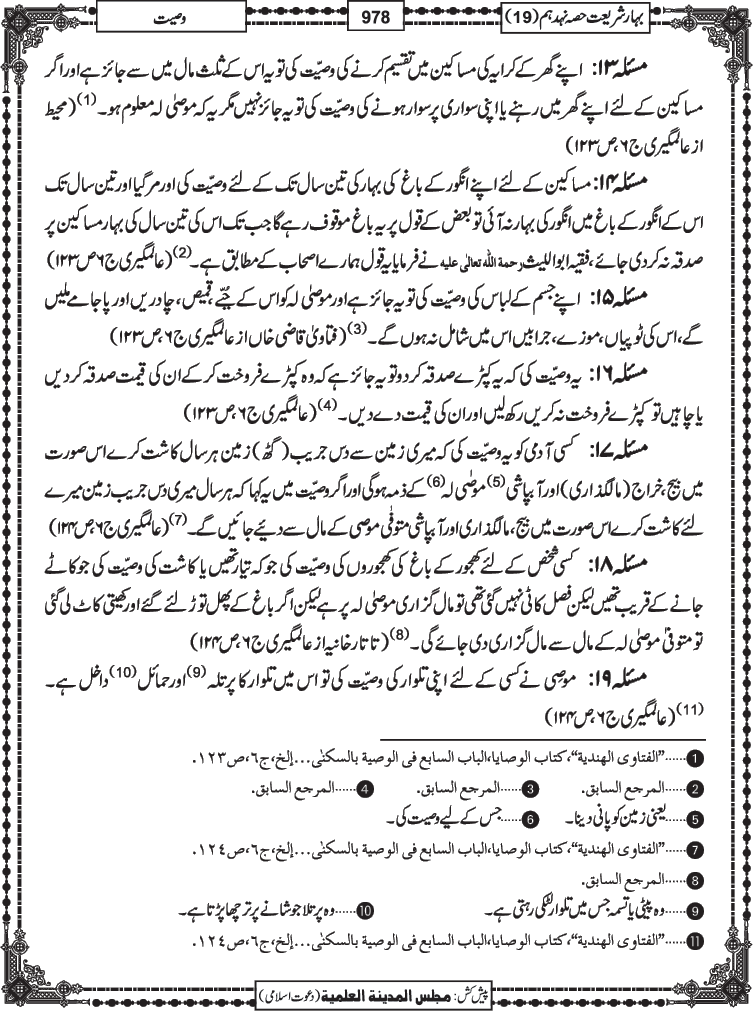 بہارِ شریعت حصہ نہدہم (19)
978
وصیت
مسئلہ ۱۳: اپنے گھر کے کرایہ کی مساکین میں تقسیم کرنے کی وصیّت کی تو یہ اس کے ثلث مال میں سے جائز ہے اور اگر
مساکین کے لئے اپنے گھر میں رہنے یا اپنی سواری پر سوار ہونے کی وصیّت کی تو یہ جائز نہیں مگر یہ کہ موصٰی لہ معلوم ہو۔(1) (محیط
از عالمگیری ج۶، ص۱۲۳)
مسئلہ ۱۴: مساکین کے لئے اپنے انگور کے باغ کی بہار کی تین سال تک کے لئے وصیّت کی اور مر گیا اور تین سال تک
اس کے انگور کے باغ میں انگور کی بہار نہ آئی تو بعض کے قول پر یہ باغ موقوف رہے گا جب تک اس کی تین سال کی بہار مساکین پر
صدقہ نہ کر دی جائے، فقیہ ابواللیث رحمة الله تعالٰی علیه نے فرمایا یہ قول ہمارے اصحاب کے مطابق ہے۔(2) (عالمگیری ج۶ ص۱۲۳)
مسئلہ ۱۵: اپنے جسم کے لباس کی وصیّت کی تو یہ جائز ہے اور موصٰی لہ کو اس کے جُبّے، قمیص، چادریں اور پاجامے ملیں
گے، اس کی ٹوپیاں، موزے، جرابیں اس میں شامل نہ ہوں گے۔(3) (فتاویٰ قاضی خاں از عالمگیری ج۶، ص۱۲۳)
مسئلہ ۱۶: یہ وصیّت کی کہ یہ کپڑے صدقہ کر دو تو یہ جائز ہے کہ وہ کپڑے فروخت کر کے ان کی قیمت صدقہ کر دیں
یا چاہیں تو کپڑے فروخت نہ کریں رکھ لیں اور ان کی قیمت دے دیں۔(4) (عالمگیری ج۶، ص۱۲۳)
مسئلہ ۱۷: کسی آدمی کو یہ وصیّت کی کہ میری زمین سے دس جریب (گٹھہ) زمین ہر سال کاشت کرے اس صورت
میں بیج، خراج (مالگذاری) اور آبپاشی(5) موصٰی لہ(6) کے ذمہ ہوگی اور اگر وصیّت میں یہ کہا کہ ہر سال میری دس جریب زمین میرے
لئے کاشت کرے اس صورت میں بیج، مالگذاری اور آبپاشی متوفّی موصی کے مال سے دیئے جائیں گے۔(7) (عالمگیری ج۶ ص۱۲۴)
مسئلہ ۱۸: کسی شخص کے لئے کھجور کے باغ کی کھجوروں کی وصیّت کی جو کہ تیار تھیں یا کاشت کی وصیّت کی جو کاٹے
جانے کے قریب تھیں لیکن فصل کاٹی نہیں گئی تھی تو مال گزاری موصٰی لہ پر ہے لیکن اگر باغ کے پھل توڑ لئے گئے اور کھیتی کاٹ لی گئی
تو متوفیٰ موصٰی لہ کے مال سے مال گزاری دی جائے گی۔(8) (تاتارخانیہ از عالمگیری ج۶، ص۱۲۴)
مسئلہ ۱۹: موصی نے کسی کے لئے اپنی تلوار کی وصیّت کی تو اس میں تلوار کا پرتلہ(9) اور حمائل(10) داخل ہے۔
(11) (عالمگیری ج۶، ص۱۲۴)
1......"الفتاوى الهندية"، كتاب الوصايا، الباب السابع في الوصية بالسكنٰى...إلخ، ج٦، ص١٢٣.
2......المرجع السابق. 3......المرجع السابق. 4......المرجع السابق.
5......یعنی زمین کو پانی دینا۔ 6......جس کے لیے وصیت کی۔
7......"الفتاوى الهندية"، كتاب الوصايا، الباب السابع في الوصية بالسكنٰى...إلخ، ج٦، ص١٢٤.
8......المرجع السابق.
9......وہ پیٹی یا تسمہ جس میں تلوار لٹکی رہتی ہے۔ 10......وہ پرتلا جو شانے پر ترچھا پڑتا ہے۔
11......"الفتاوى الهندية"، كتاب الوصايا، الباب السابع في الوصية بالسكنٰى...إلخ، ج٦، ص١٢٤.
پیش کش: مجلس المدينة العلمية (دعوتِ اسلامی)